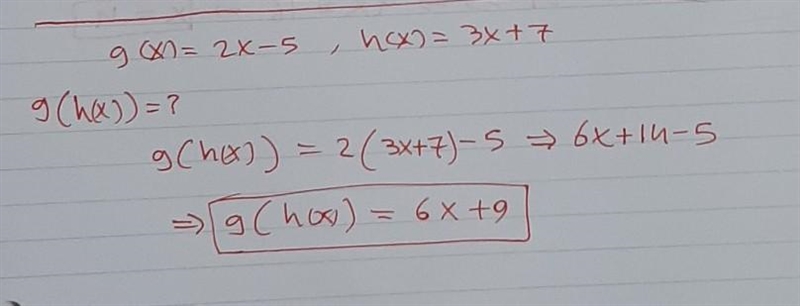 g(x) = 2x-5 , h(x) = 3x+7
g(h(x)) = ?
g(h(x)) = 2(3x+7)-5 ⇒ 6x+14-5
⇒ g(h(x)) = 6x+9